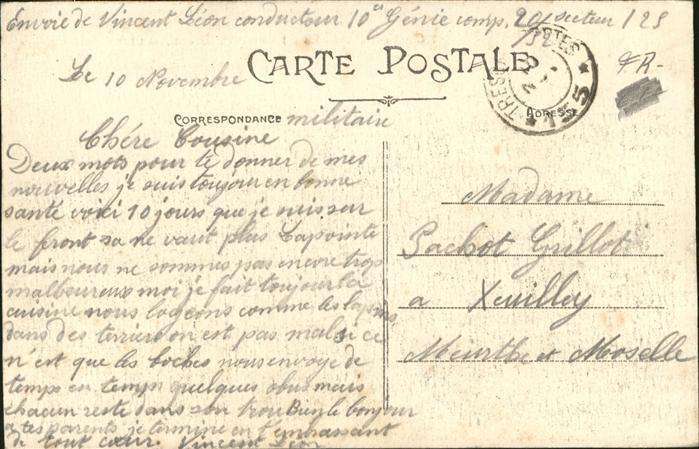 Envoie de Vincent Léon conducteur 10e Génie comp. 20/ secteur 125
/52
Le 10 Novembre
CARTE POSTALE
TRESOR POSTES
* 155 *
ADRESSE
FR-
CORRESPONDANCE militaire
Chére Cousine
Deux mots pour te donner de mes
nouvelles je suis toujour en bonne
santé voici 10 jours que je suis sur
le front sa ne vaut plus Lapointe
mais nous ne sommes pas encore trop
malheureux moi je fait toujour la
cuisine nous lageons comme les lapins
dans des terriers on est pas mal si ce
n'est que les boches nous envoye de
temps en temps quelques obus mais
chacun reste dans son trou Bien le bonjour
a tes parents je termine en t'embrassant
de tout cœur. Vincent Léon
Madame
Pachot Grillot
a Xeuilley
Meurthe et Moselle